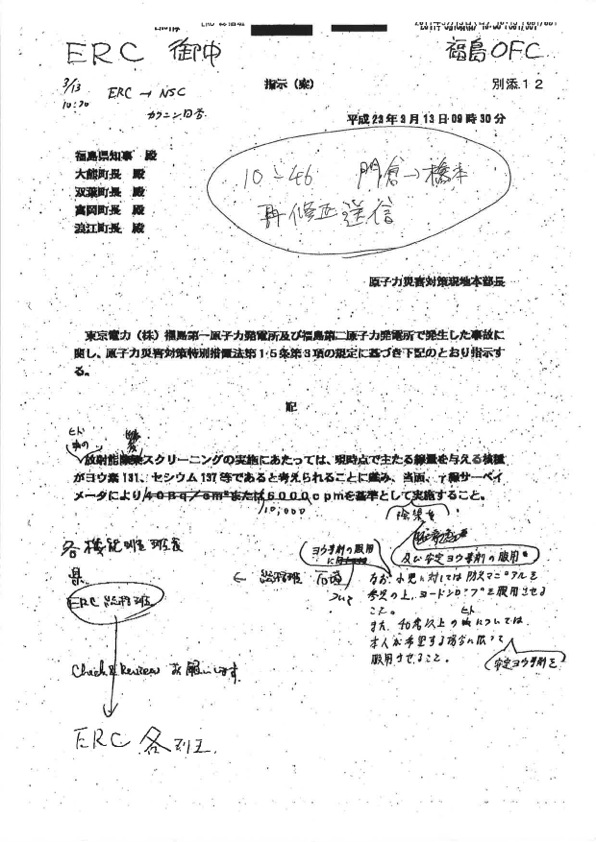 ERC 御中
福島OFC
3/13
10:20
ERC → NSC
カクニン
指示（案）
別添.12
平成23年3月13日09時30分
福島県知事 殿
大熊町長 殿
双葉町長 殿
富岡町長 殿
浪江町長 殿
10:46 門倉→橋本
再修正送信
原子力災害対策現地本部長
東京電力（株）福島第一原子力発電所及び福島第二原子力発電所で発生した事故に
関し、原子力災害対策特別措置法第15条第3項の規定に基づき下記のとおり指示す
る。
記
放射能 スクリーニングの実施にあたっては、現時点で主たる線量を与える核種
がヨウ素131、セシウム137等であると考えられることに鑑み、当面、γ線サーベイ
メータにより40Bq/cm²または6000cpmを基準として実施すること。
10,000
除染
各機能班班長
県
ERC 総括班
← 総括班
ヨウ素剤の服用
に
ついて
及び安定ヨウ素剤の服用
なお、小児に対しては防災マニュアルを
参受の上、ヨードシロップを服用させる
こと。
また、40歳以上の については
本人が希望する場合に限って
服用させること。
安定ヨウ素剤を
Check & Review お願いします
ERC 各班